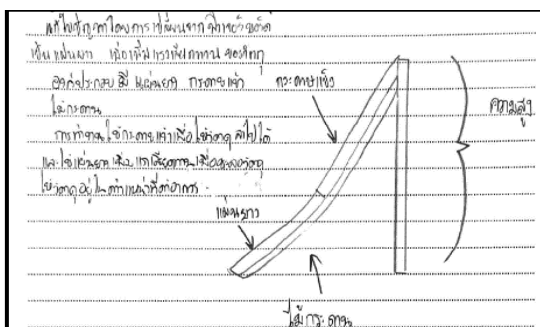 แก้ไขปัญหาโดยการเปลี่ยนจาก
เป็นแผ่นยาว เพื่อเพิ่มแรงเสียดทาน ของวัตถุ
องค์ประกอบมี แผ่นยาง กระดาษแข็ง
ไม้กระดาน
การทำงาน ใช้กระดาษแข็งเพื่อให้วัตถุ ลงไปได้
และใช้แผ่นยาง เพื่อ แรงเสียดทาน เพื่อชะลอวัตถุ
ให้วัตถุอยู่ในตำแหน่งที่ต้องการ
กระดาษแข็ง
ความสูง
แผ่นยาง
ไม้กระดาน